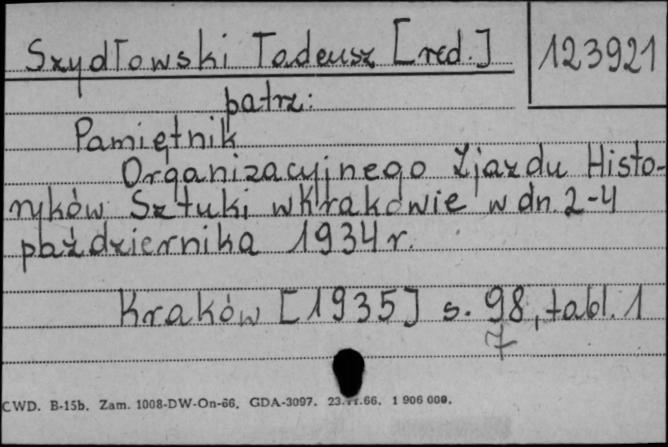 Szydłowski Tadeusz [red.]
123921
patrz:
Pamiętnik
Organizacyjnego Zjazdu Histo-
ryków Sztuki w Krakowie w dn. 2-4
października 1934 r.
Kraków [1935] s. 98, tabl. 1
7
CWD. B-15b. Zam. 1008-DW-On-66. GDA-3097. 23.11.66. 1 906 000.